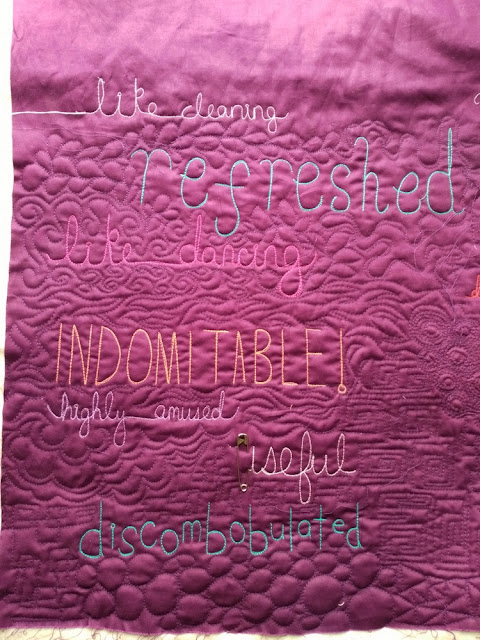 like cleaning
refreshed
like dancing
INDOMITABLE!
highly amused
useful
discombobulated